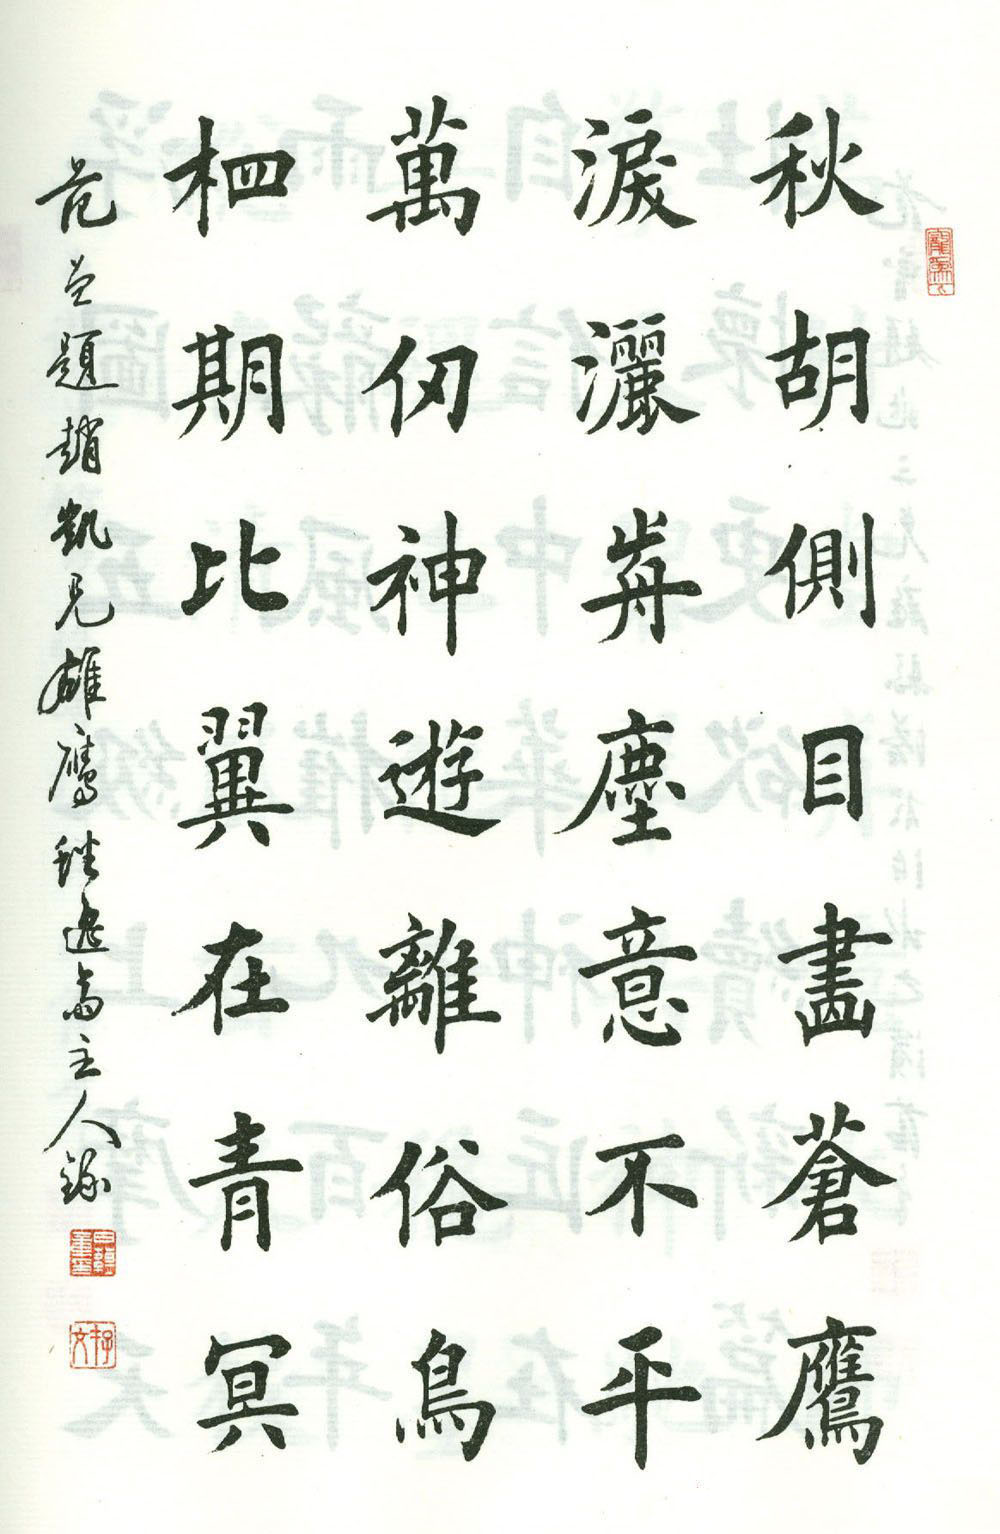 秋胡側目畫蒼鷹
淚灑歬塵意不平
萬仞神遊離俗鳥
相期比翼在青冥
范題趙凱兄雄鷹主人錄